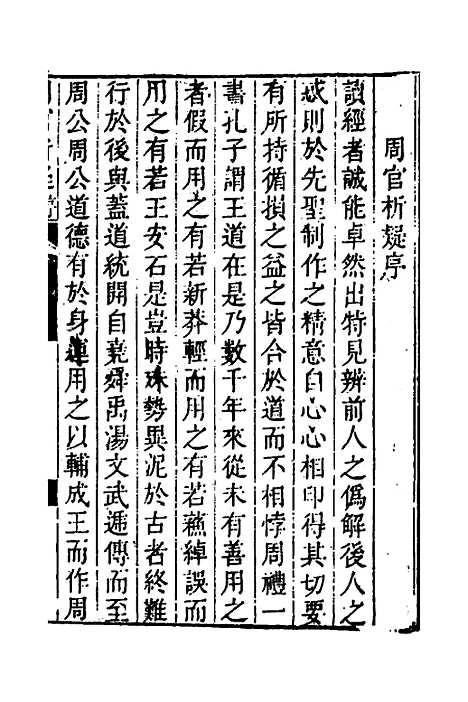 周官析疑序
讀經者誠能卓然出特見辨前人之僞解後人之
惑則於先聖制作之精意自心心相印得其切要
有所持循損之益之皆合於道而不相悖周禮一
書孔子謂王道在是乃數千年來從未有善用之
者假而用之有若新莽輕而用之有若蘇綽誤而
用之有若王安石是豈時殊勢異泥於古者終難
行於後與蓋道統開自堯舜禹湯文武遞傳而至
周公周公道德有於身運用之以輔成王而作周